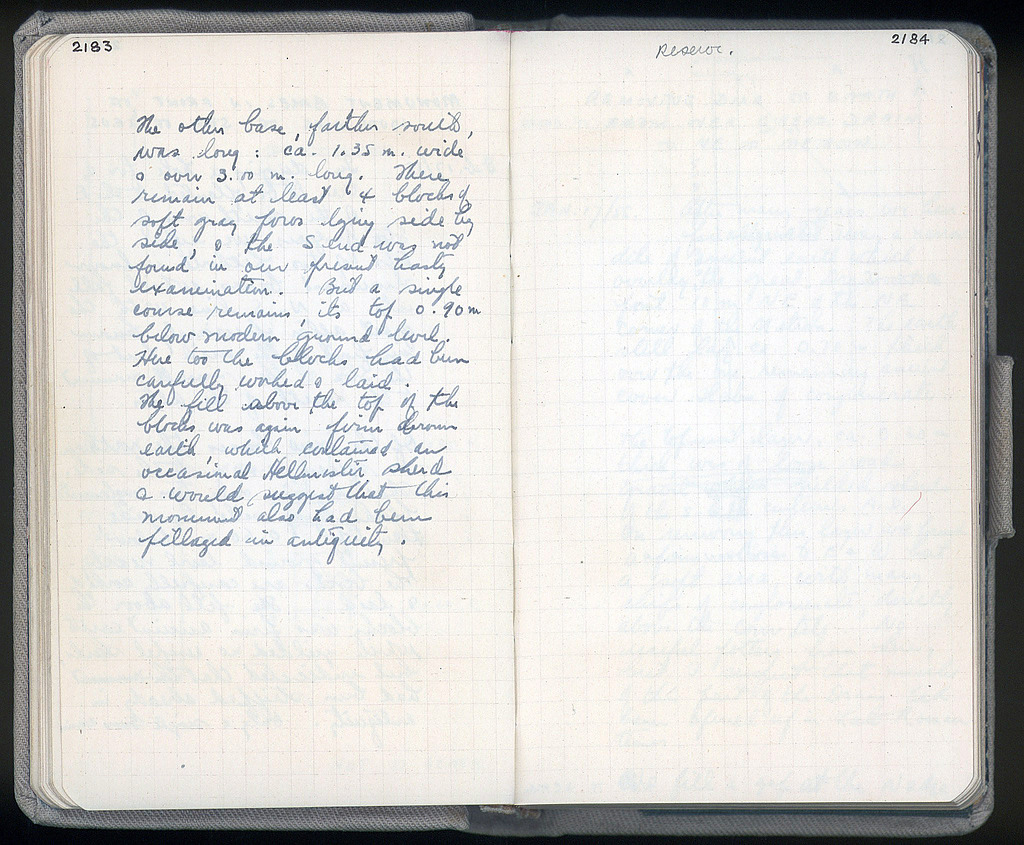 2183
The other base, farther south,
was long : ca. 1.35 m. wide
& over 3.00 m. long. There
remain at least 4 blocks of
soft gray poros lying side by
side, & the S end was not
found in our present hasty
examination. But a single
course remains, its top 0.90 m
below modern ground level.
Here too the blocks had been
carefully worked & laid.
The fill above the top of the
blocks was again firm brown
earth, which contained an
occasional Hellenistic sherd
& would suggest that this
monument also had been
pillaged in antiquity.
2184
Reserve.